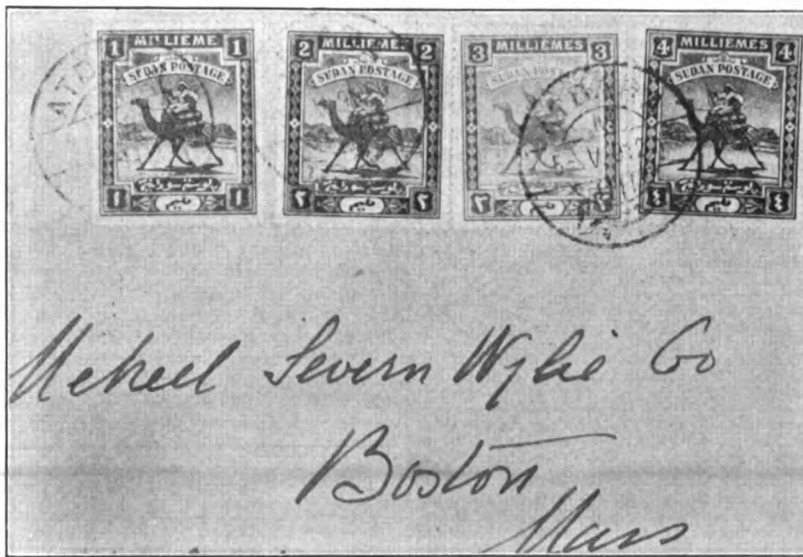 1 MILLIEME 1
SUDAN POSTAGE
١ مليم ١
2 MILLIEMES 2
SUDAN POSTAGE
٢ مليم ٢
3 MILLIEMES 3
SUDAN POSTAGE
٣ مليم ٣
4 MILLIEMES 4
SUDAN POSTAGE
٤ مليم ٤
Mekeel Severn Wylie Co
Boston
Mass